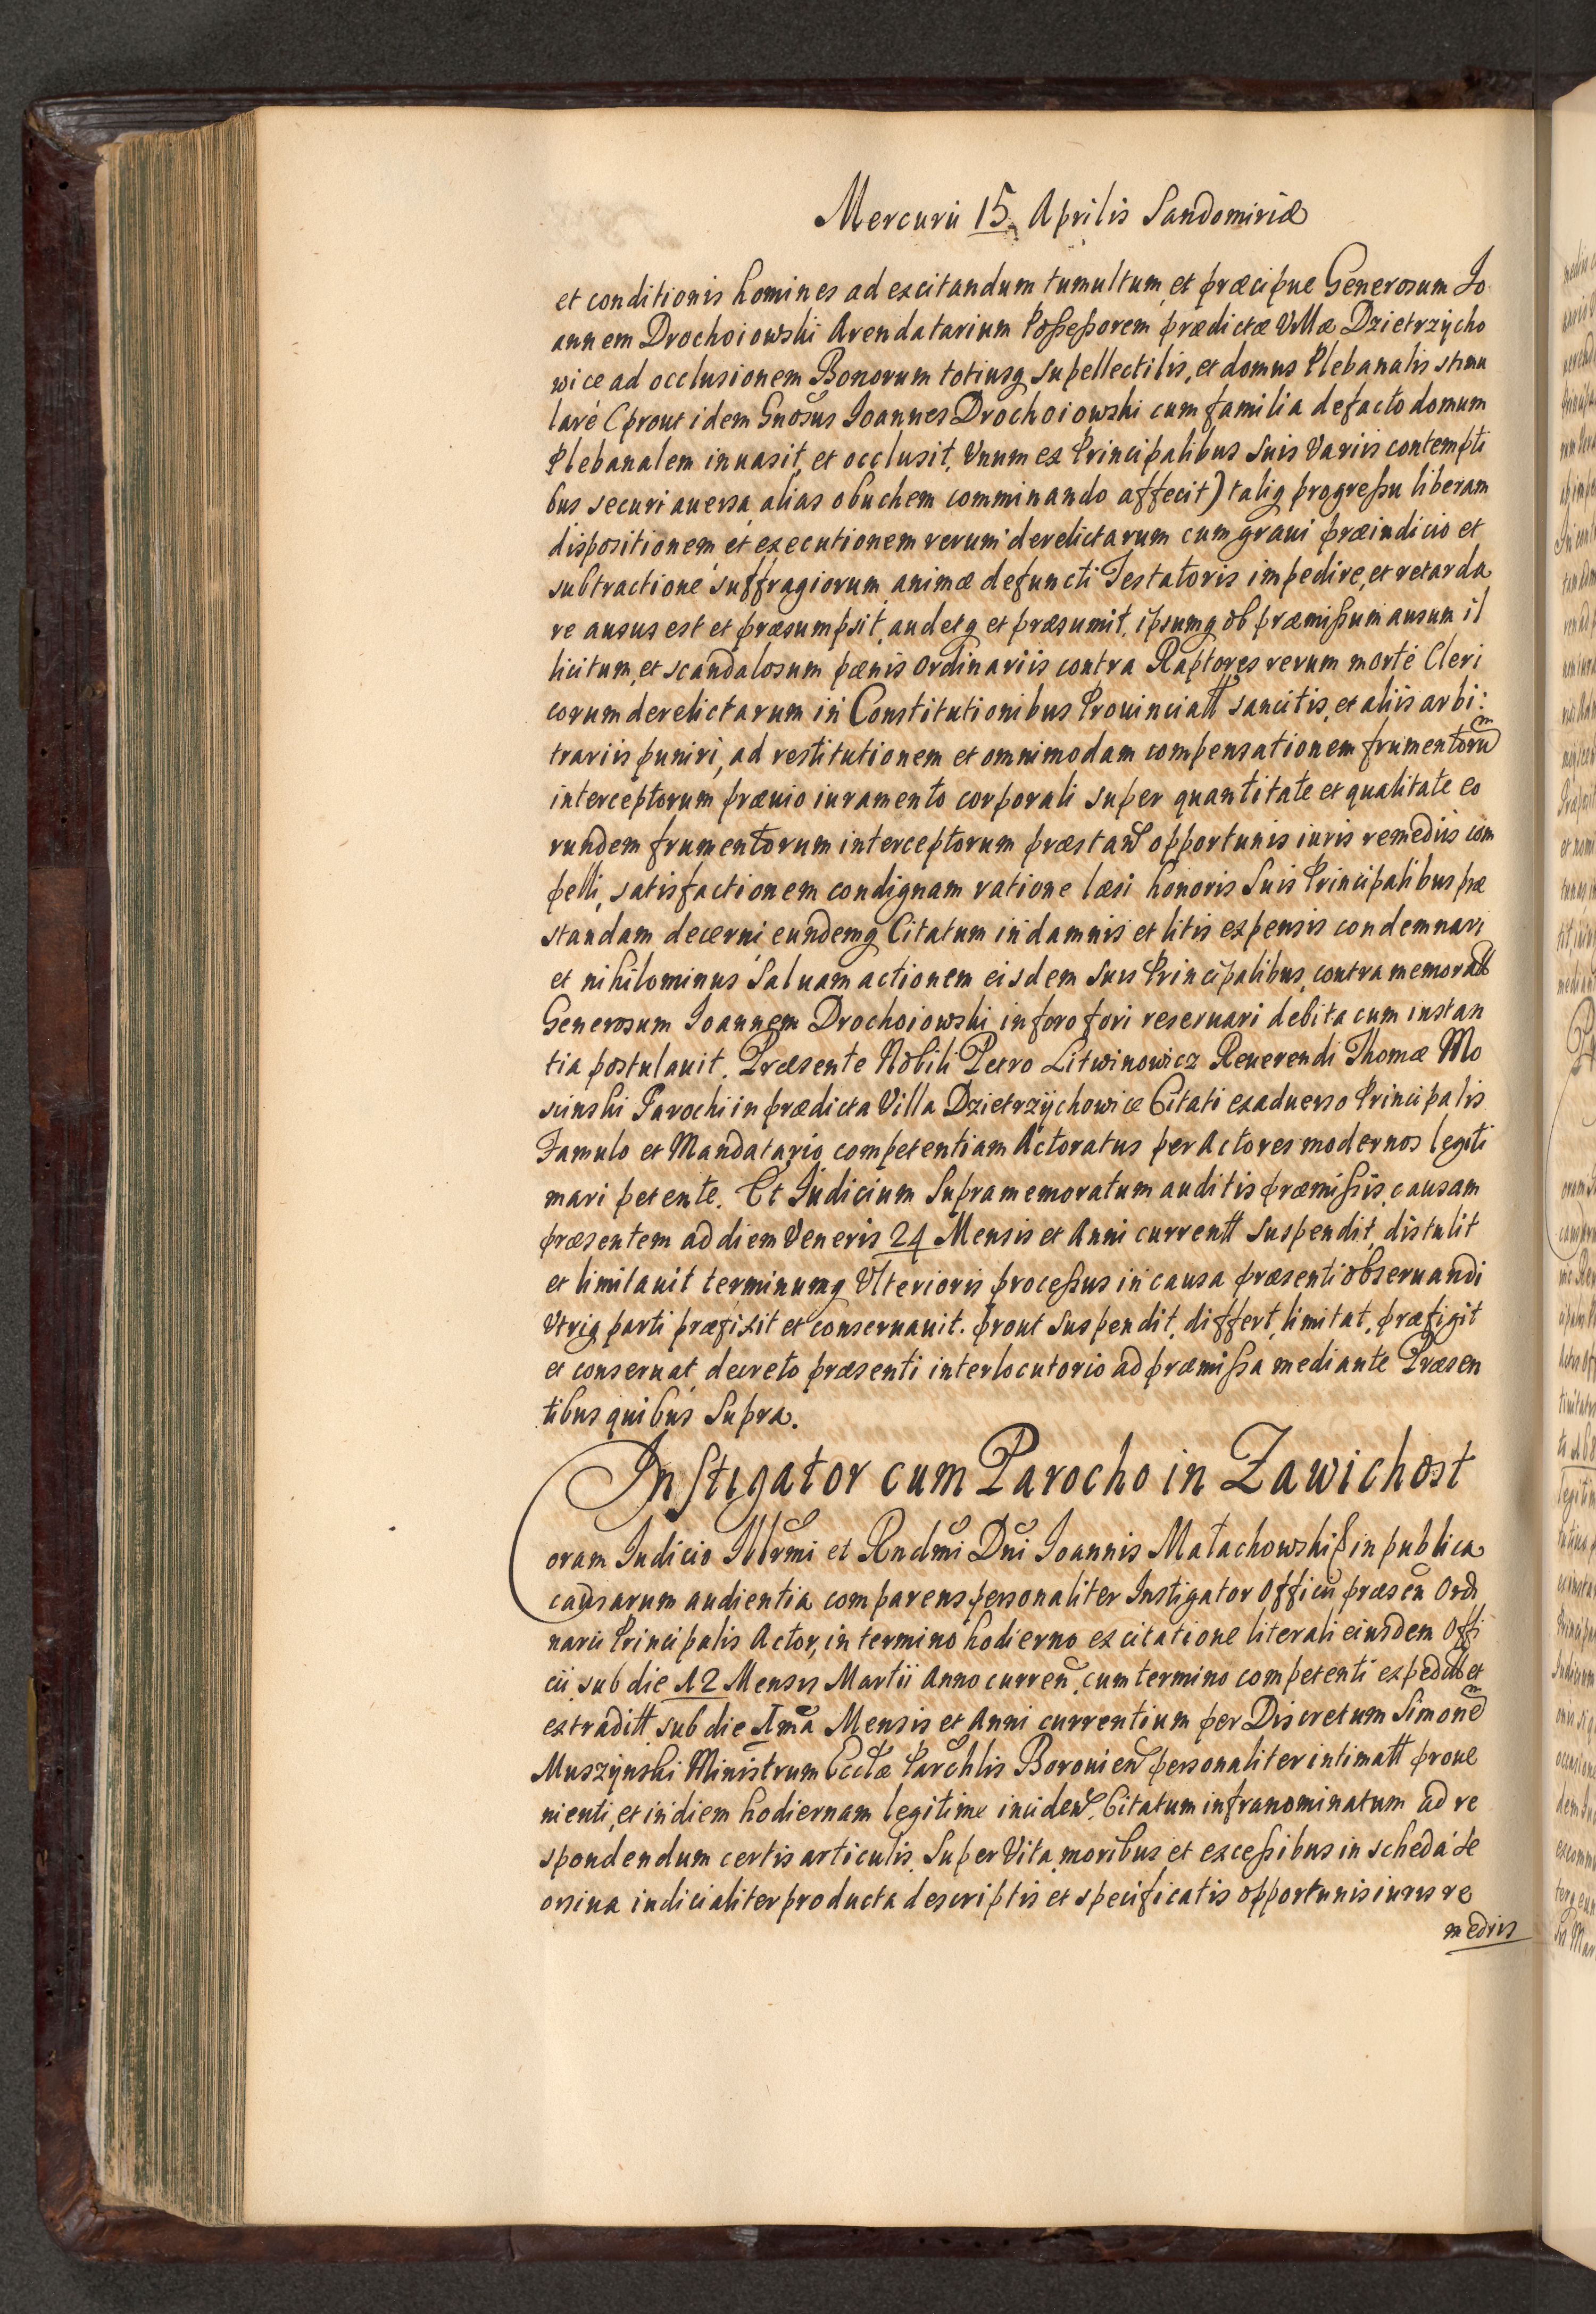 Mercurii 15. Aprilis Sandomiriæ
et conditionis homines ad excitandum tumultum, et præcipue Generosum Jo
annem Drochoiowski Arendatarium Possessorem prædictæ Villæ Dzietrzycho
wice ad occlusionem Bonorum totiusq supellectilis, et domus Plebanalis stimu
lare (prout idem Gnosus Joannes Drochoiowski cum familia defacto domum
Plebanalem inuasit, et occlusit, Vnum ex Principalibus Suis Variis contempti
bus securi auersa, alias obuchem comminando affecit) taliq progressu liberam
dispositionem et executionem rerum derelictarum cum graui præiudicio et
subtractione suffragiorum animæ defuncti Testatoris impedire, et retarda
re ausus est et præsumpsit, audetq et præsumit, ipsumq ob præmissum ausum il
licitum, et scandalosum pænis ordinariis contra Raptores rerum morte Cleri
corum derelictarum in Constitutionibus Prouinciall sancitis, et aliis arbi:
trariis puniri, ad restitutionem et omnimodam compensationem frumentoru̅m
interceptorum præuio iuramento corporali super quantitate et qualitate eo
rundem frumentorum interceptorum præstan opportunis iuris remediis com
pelli, satisfactionem condignam ratione læsi honoris Suis Principalibus præ
standam decerni, eundemq Citatum in damnis et litis expensis condemnari
et nihilominus Saluam actionem eisdem Suis Principalibus, contra memoratt
Generosum Joannem Drochoiowski in foro fori reseruari debita cum instan
tia postulauit. Præsente Nobili Petro Litwinowicz Reuerendi Thomæ Mo
scinski Parochi in prædicta Villa Dzietrzychowice Citati exaduerso Principalis
Famulo et Mandatario competentiam Actoratus per Actores modernos legiti
mari petente. Et Judicium Supramemoratum auditis præmissis, causam
præsentem ad diem Veneris 24 Mensis et Anni currentt Suspendit, distulit
et limitauit terminumq Vlterioris processus in causa præsenti obseruandi
Vtriq parti præfixit et conseruauit. prout Suspendit, differt, limitat, præfigit
et conseruat decreto præsenti interlocutorio ad præmissa mediante Præsen
tibus quibus Supra.
Instigator cum Parocho in Zawichost
Coram Judicio Illrmi et Rndmi Dni Joannis Małachowski in publica
causarum audientia comparens personaliter Instigator Officii præsen Ordi
narii Principalis Actor, in termino hodierno ex citatione literali eiusdem Offi
cii sub die 12 Mensis Martii Anno curren, cum termino competenti expeditt et
extraditt sub die Ima Mensis et Anni currentium per Discretum Simone̅m
Muszynski Ministrum Ecclæ Parchlis Boronien personaliter intimatt proue
nienti, et in diem hodiernam legitime inciden. Citatum infranominatum ad re
spondendum certis articulis Super Vita moribus et excessibus in scheda se
orsiua iudicialiter producta descriptis et specificatis opportunis iuris re
mediis